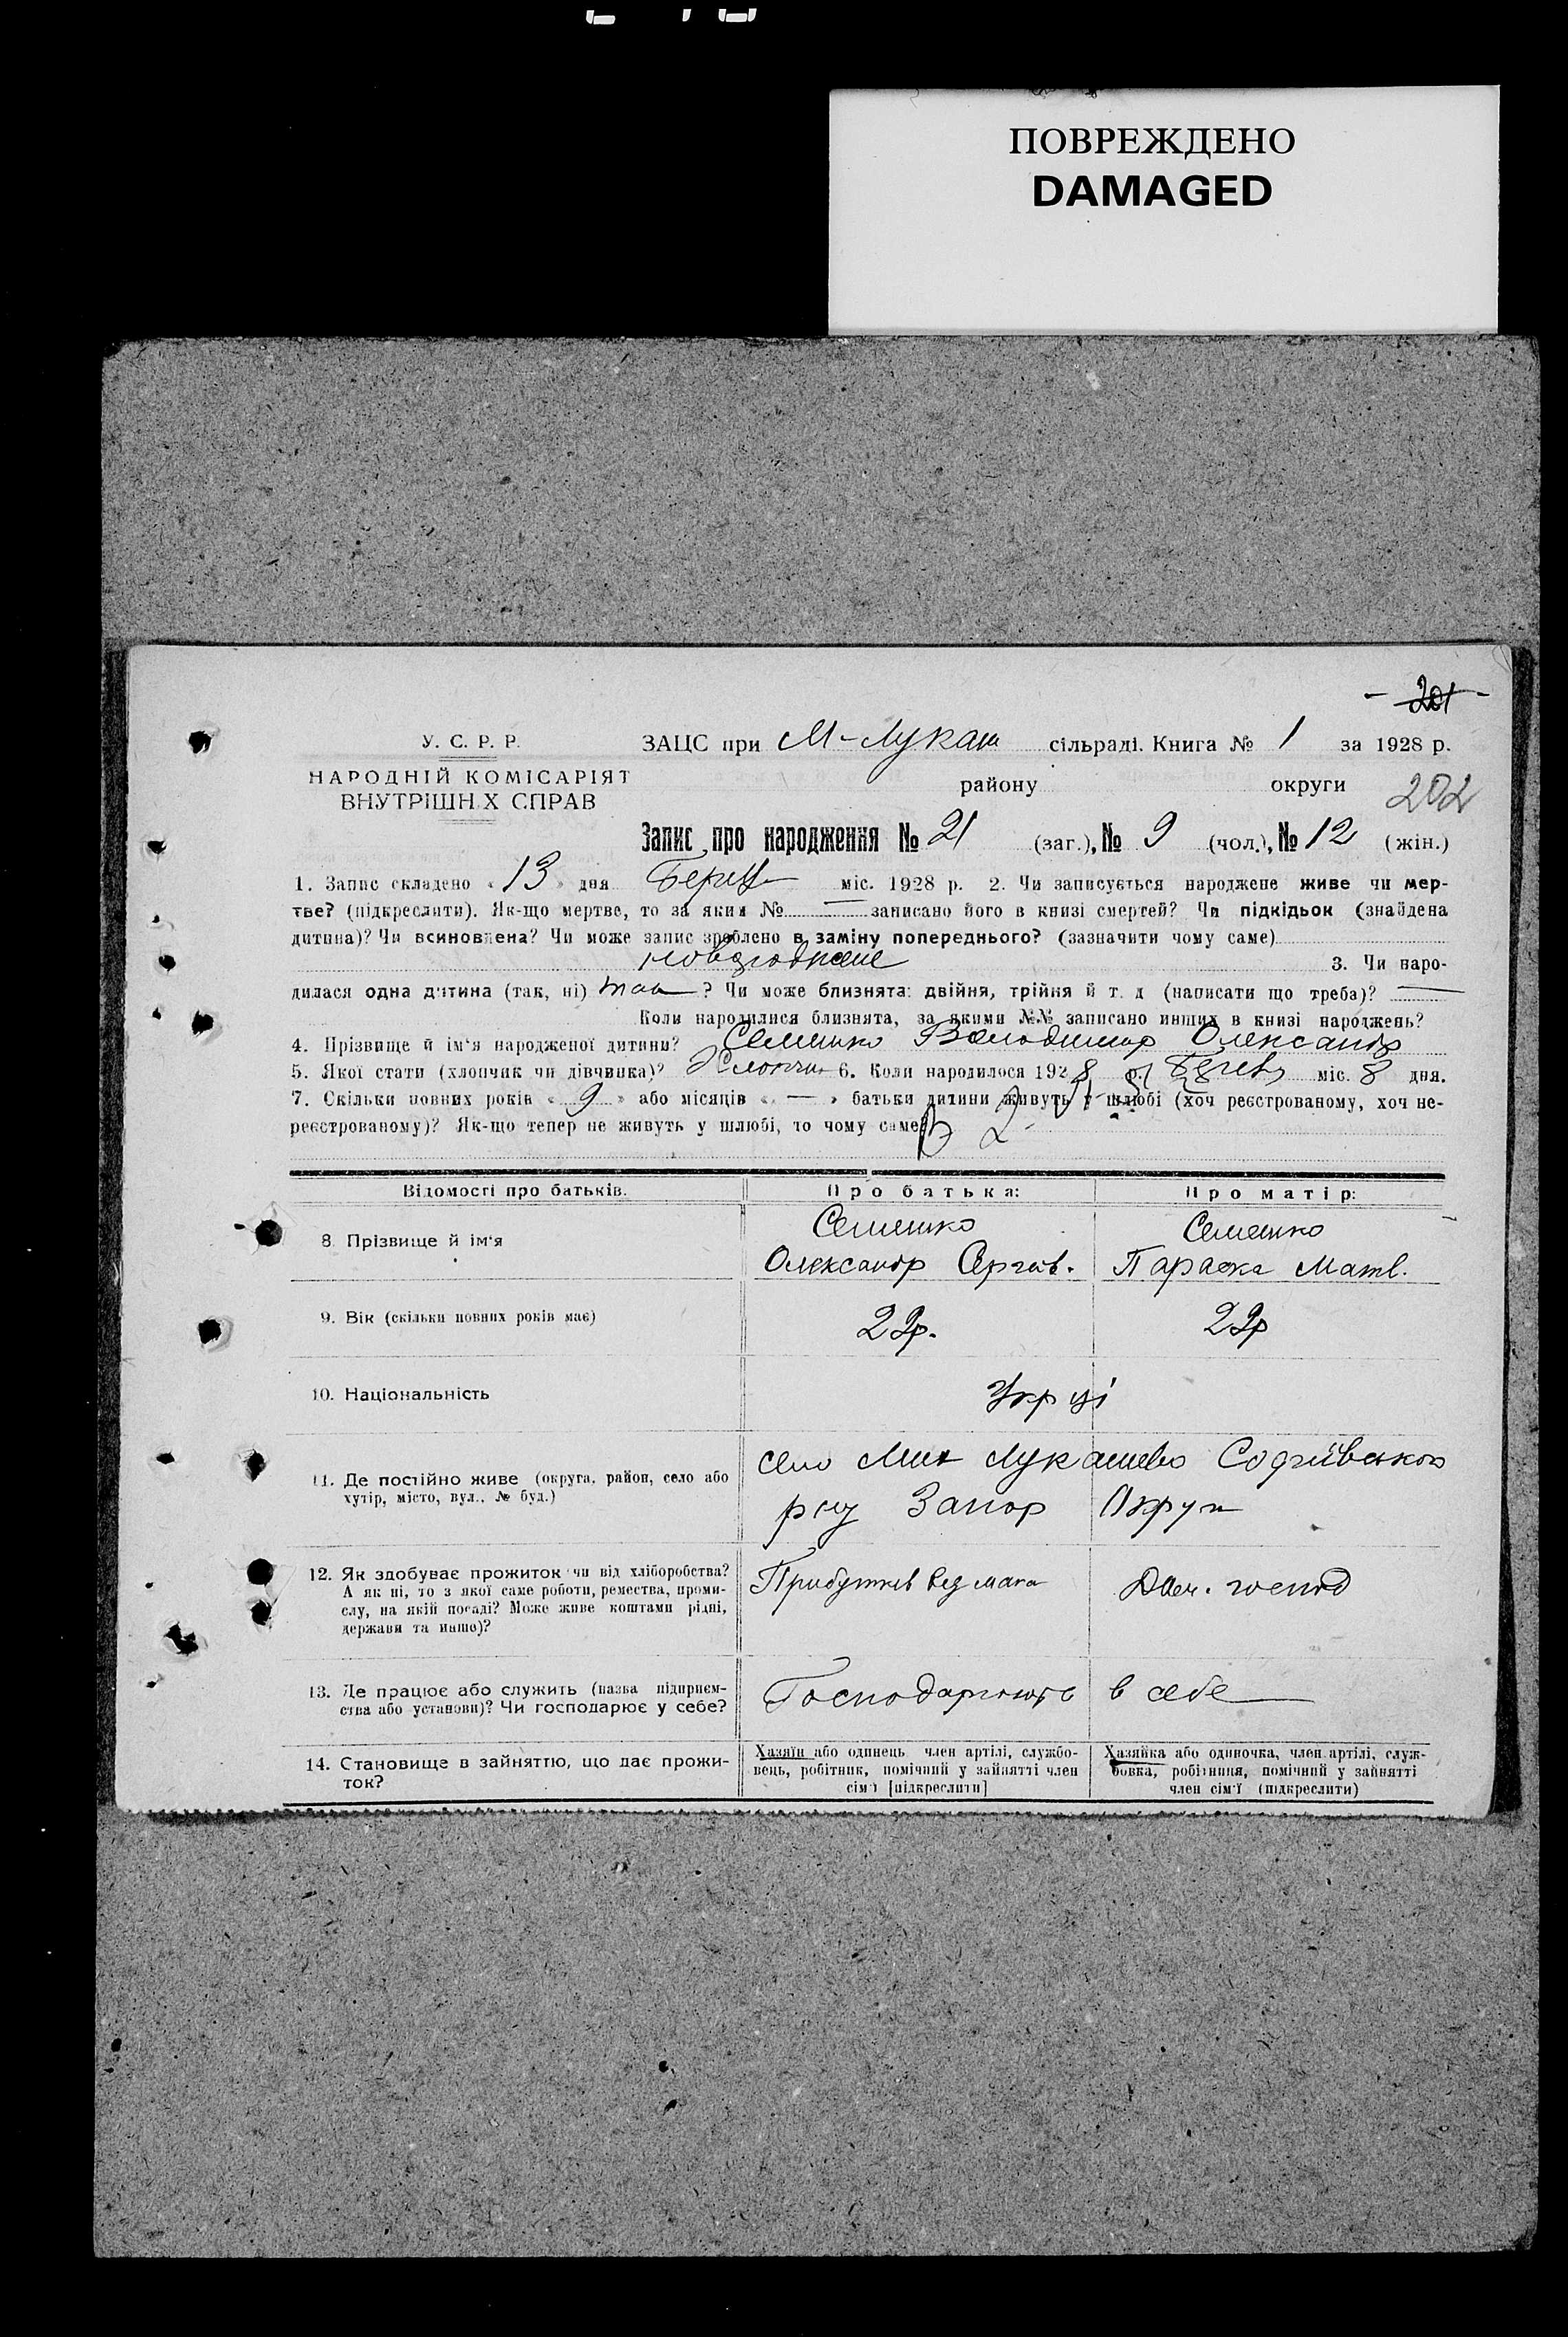 ПОВРЕЖДЕНО
DAMAGED
- 201 -
У. С. Р. Р.
НАРОДНІЙ КОМІСАРІЯТ
ВНУТРІШН Х СПРАВ
ЗАЦС при М-Лукаш сільраді. Книга № 1 за 1928 р.
району округи 202
Запис про народження № 21 (заг.), № 9 (чол.), № 12 (жін.)
1. Запис складено « 13 » дня міс. 1928 р. 2. Чи записується народжене живе чи мер-
тве? (підкреслити). Як-що мертве, то за яким № — записано його в книзі смертей? Чи підкідьок (знайдена
дитина)? Чи всиновлена? Чи може запис зроблено в заміну попереднього? (зазначити чому саме)
3. Чи наро-
дилася одна дитина (так, ні) так ? Чи може близнята: двійня, трійня й т. д (написати що треба)? —
Коли народилися близнята, за якими №№ записано инших в книзі народжень?
4. Прізвище й ім'я народженої дитини? Семешко Володимир Олександр
5. Якої стати (хлопчик чи дівчинка)? Хлопчик 6. Коли народилося 1928 р. міс. 8 дня.
7. Скільки повних років « 9 » або місяців « — » батьки дитини живуть у шлюбі (хоч реєстрованому, хоч не-
реєстрованому)? Як-що тепер не живуть у шлюбі, то чому саме?
Відомості про батьків. Про батька: Про матір:
8. Прізвище й ім'я
Семешко
Олександр Сергіїв.
Семешко
Параска Матв.
9. Вік (скільки повних років має) 29р. 29р
10. Національність Укр ці
11. Де постійно живе (округа, район, село або
хутір, місто, вул., № буд.)
село Мик Лукашево Софіївського
р ну Запор Округи
12. Як здобуває прожиток чи від хліборобства?
А як ні, то з якої саме роботи, ремества, проми-
слу, на якій посаді? Може живе коштами рідні,
держави та инше)?
Дом. господ
13. Де працює або служить (назва підприєм-
ства або установи)? Чи господарює у себе?
Господарюють в себе
14. Становище в зайняттю, що дає прожи-
ток?
Хазяїн або одинець член артілі, службо-
вець, робітник, помічний у зайнятті член
сім'ї [підкреслити]
Хазяйка або одиночка, член артілі, служ-
бовка, робітниця, помічний у зайнятті
член сім'ї (підкреслити)